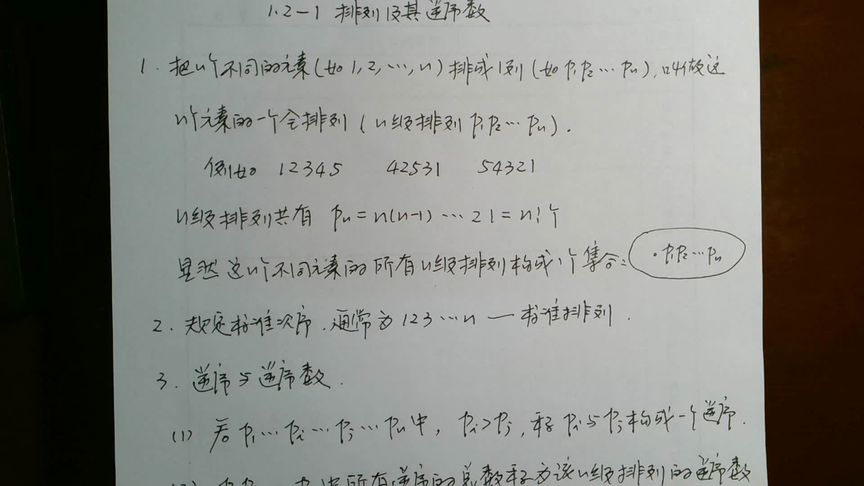 1.2-1 排列及其逆序数
1. 把n个不同的元素(如1,2,…,n)排成1列(如p₁p₂…pₙ),叫做这
n个元素的一个全排列(n级排列p₁p₂…pₙ).
例如 12345 42531 54321
n级排列共有 pₙ=n(n-1)…21=n!个
显然这n个不同元素的所有n级排列构成1个集合: ·p₁p₂…pₙ
2. 规定标准次序,通常为123…n — 标准排列.
3. 逆序与逆序数.
(1) 若p₁…pᵢ…pⱼ…pₙ中, pᵢ>pⱼ, 称pᵢ与pⱼ构成一个逆序.
中所有逆序的总数称为该n级排列的逆序数